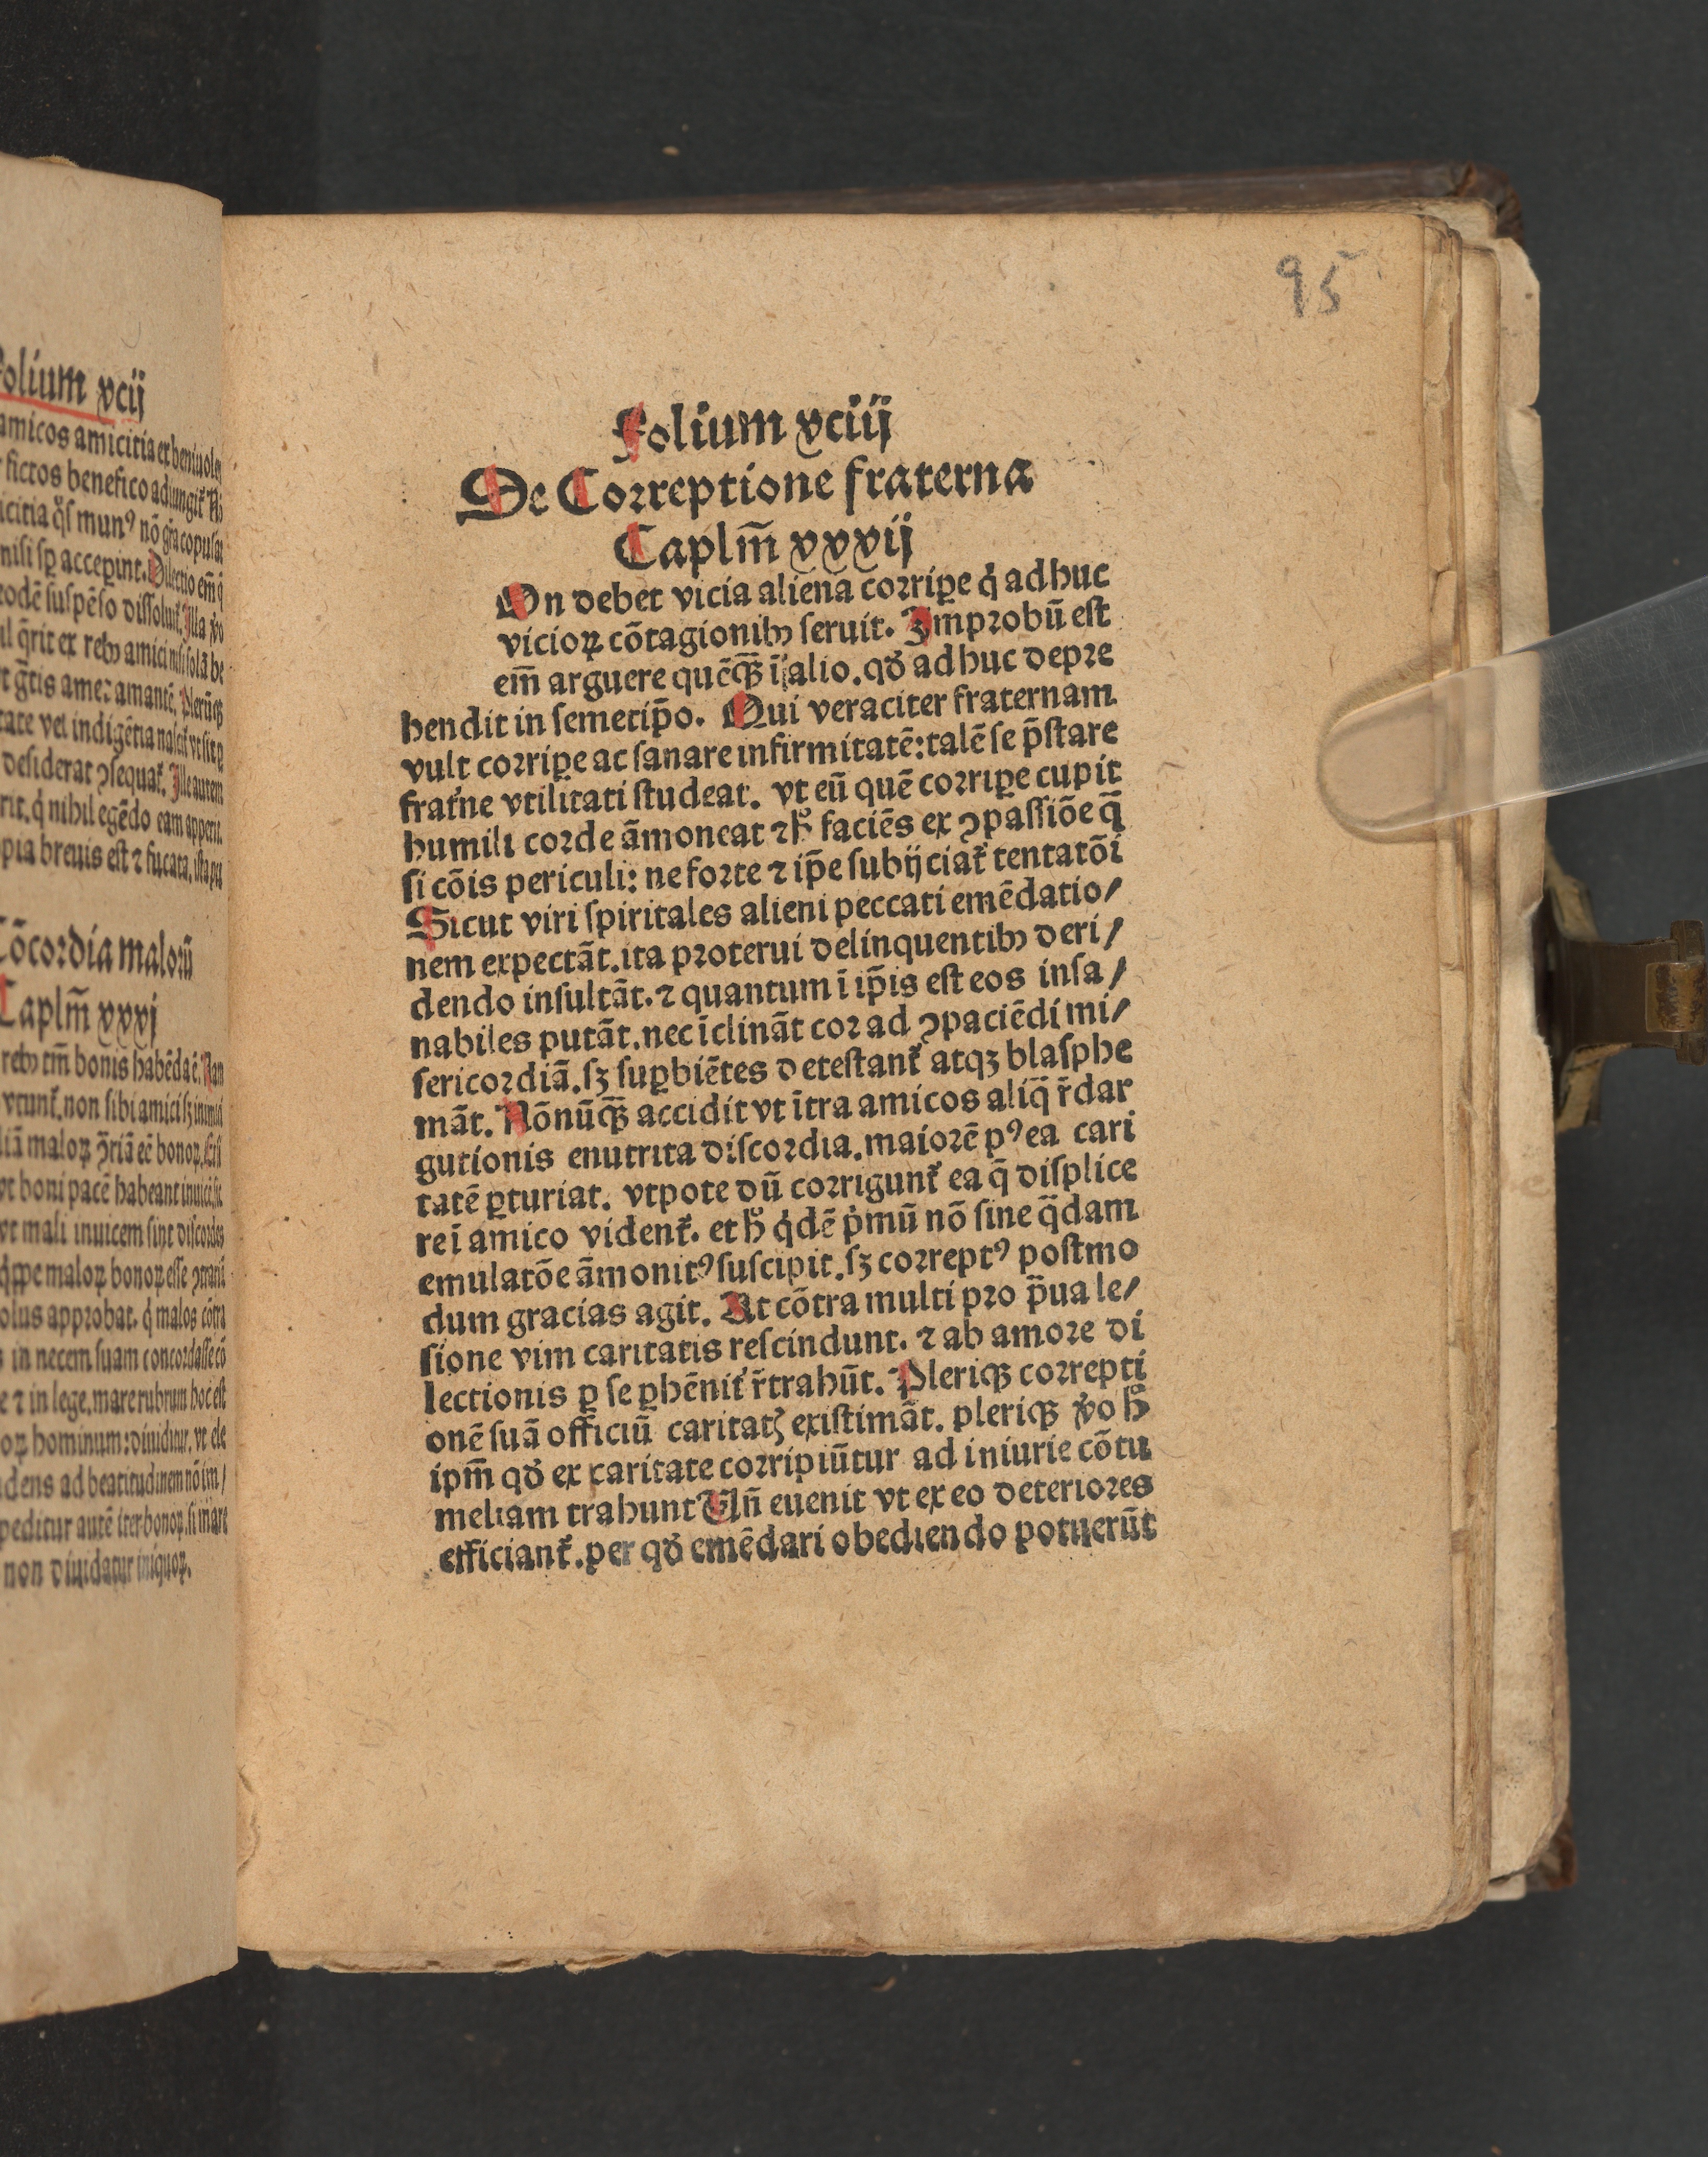 95
olium xcij
amicos amicitia et beniuole
fictos benefico adiungit᷑
mun⁹ nō gr̄a copulāt
accep̱int. Dilectio em̄
eodē suspēso dissoluit᷑. Illa
q̄rit ex rebꝫ amici nisi solā be
gr̄tis ame⁊ amantē. Plerūqꝫ
tate vel indigētia nascit᷑ vt sit
desiderat ꝯsequat᷑. Ille autem
q̇ nihil egēdo eam appetit.
pia breuis est ⁊ fucata. ista
Cōcordia malorū
Caplm̄ xxxj
rebꝫ tm̄ bonis habēda ē. Nam
vtunt᷑. non sibi amici sꝫ inimici
maloꝝ ꝯ̄riā eē bonoꝝ.
vt boni pacē habeant
vt mali inuicem sint discordes
maloꝝ bonoꝝ esse
olus approbat. q̇ malos cōtra
in necem suam concordasse cō
e ⁊ in lege. mare rubrum hoc est
oꝝ hominum: diuiditur. vt ele
dens ad beatitudinem nō im/
peditur autē iter bonoꝝ. si mare
non diuidatur iniquoꝝ.
Folium xciij
De Correptione fraterna
Caplm̄ xxxij
On debet vicia aliena corrip̱e q̇ adhuc
vicioꝝ cōtagionibꝫ seruit. Improbū est
em̄ arguere quēqꝫ̄ ī alio. qđ adhuc depre
hendit in semetip̄o. Qui veraciter fraternam
vult corrip̱e ac sanare infirmitatē: talē se p̄stare
frat᷑ne vtilitati studeat. vt eū quē corrip̱e cupit
humili corde āmoneat ⁊ h̄ faciēs ex ꝯpassiōe q̄
si cōis periculi: ne forte ⁊ ip̄e subijciat᷑ tentatōi
Sicut viri spiritales alieni peccati emēdatio/
nem expectāt. ita proterui delinquentibꝫ deri/
dendo insultāt. ⁊ quantum ī ip̄is est eos insa/
nabiles putāt. nec īclināt cor ad ꝯpaciēdi mi/
sericordiā. sꝫ sup̱biētes detestant᷑ atqꝫ blasphe
māt. Nōnūqꝫ̄ accidit vt ītra amicos aliq̄ r̄dar
gutionis enutrita discordia. maiorē p⁹ ea cari
tatē p̱turiat. vtpote dū corrigunt᷑ ea q̄ displice
re ī amico vident᷑. et h̄ q̇dē ṗmū nō sine q̄dam
emulatōe āmonit⁹ suscipit. sꝫ corrept⁹ postmo
dum gracias agit. At cōtra multi pro p̄ua le/
sione vim caritatis rescindunt. ⁊ ab amore di
lectionis p̱ se p̱hēnit᷑ r̄trahūt. Pleriqꝫ correpti
onē suā officiū caritatꝭ existimāt. pleriqꝫ v̊o h̄
ipm̄ qđ ex caritate corripiūtur ad iniurie cōtu
meliam trahunt Vn̄ euenit vt ex eo deteriores
efficiant᷑. per qđ emēdari obediendo potuerūt